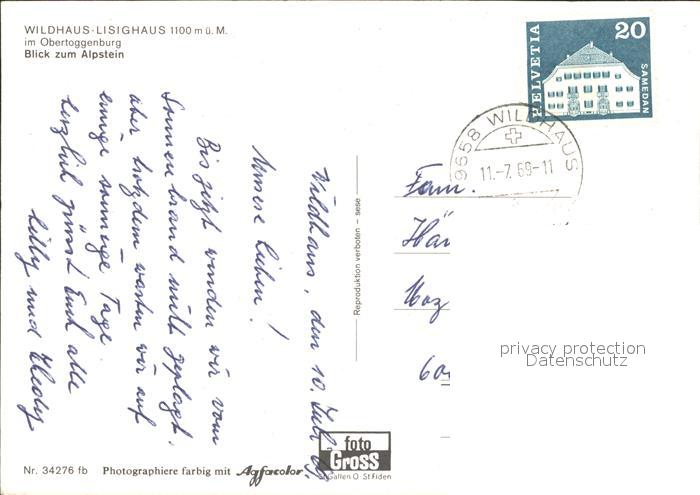 WILDHAUS-LISIGHAUS 1100 m ü. M.
im Obertoggenburg
Blick zum Alpstein
HELVETIA
20
SAMEDAN
9658 WILDHAUS
11.-7.69-11
Wildhaus, den 10. Juli 69
Meine Lieben!
Bis jetzt wurden wir vom
Sonnenbrand nicht geplagt.
aber trotzdem warten wir auf
einige sonnige Tage.
herzlich grüsst Euch alle
Lilly und Hedy
Reproduktion verboten – sese
Fam.
Här
Moz
privacy protection
Datenschutz
foto
GROSS
St Gallen O · St Fiden
Nr. 34276 fb
Photographiere farbig mit Agfacolor